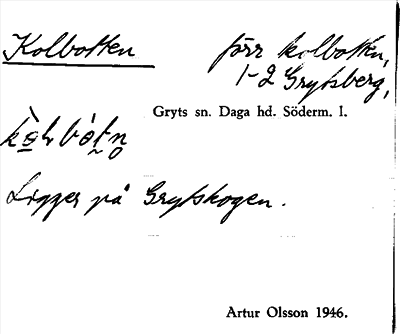 Kolbotten
förr kolbotten,
1-2 Grytsberg,
Gryts sn. Daga hd. Söderm. l.
Ligger på Grytskogen.
Artur Olsson 1946.